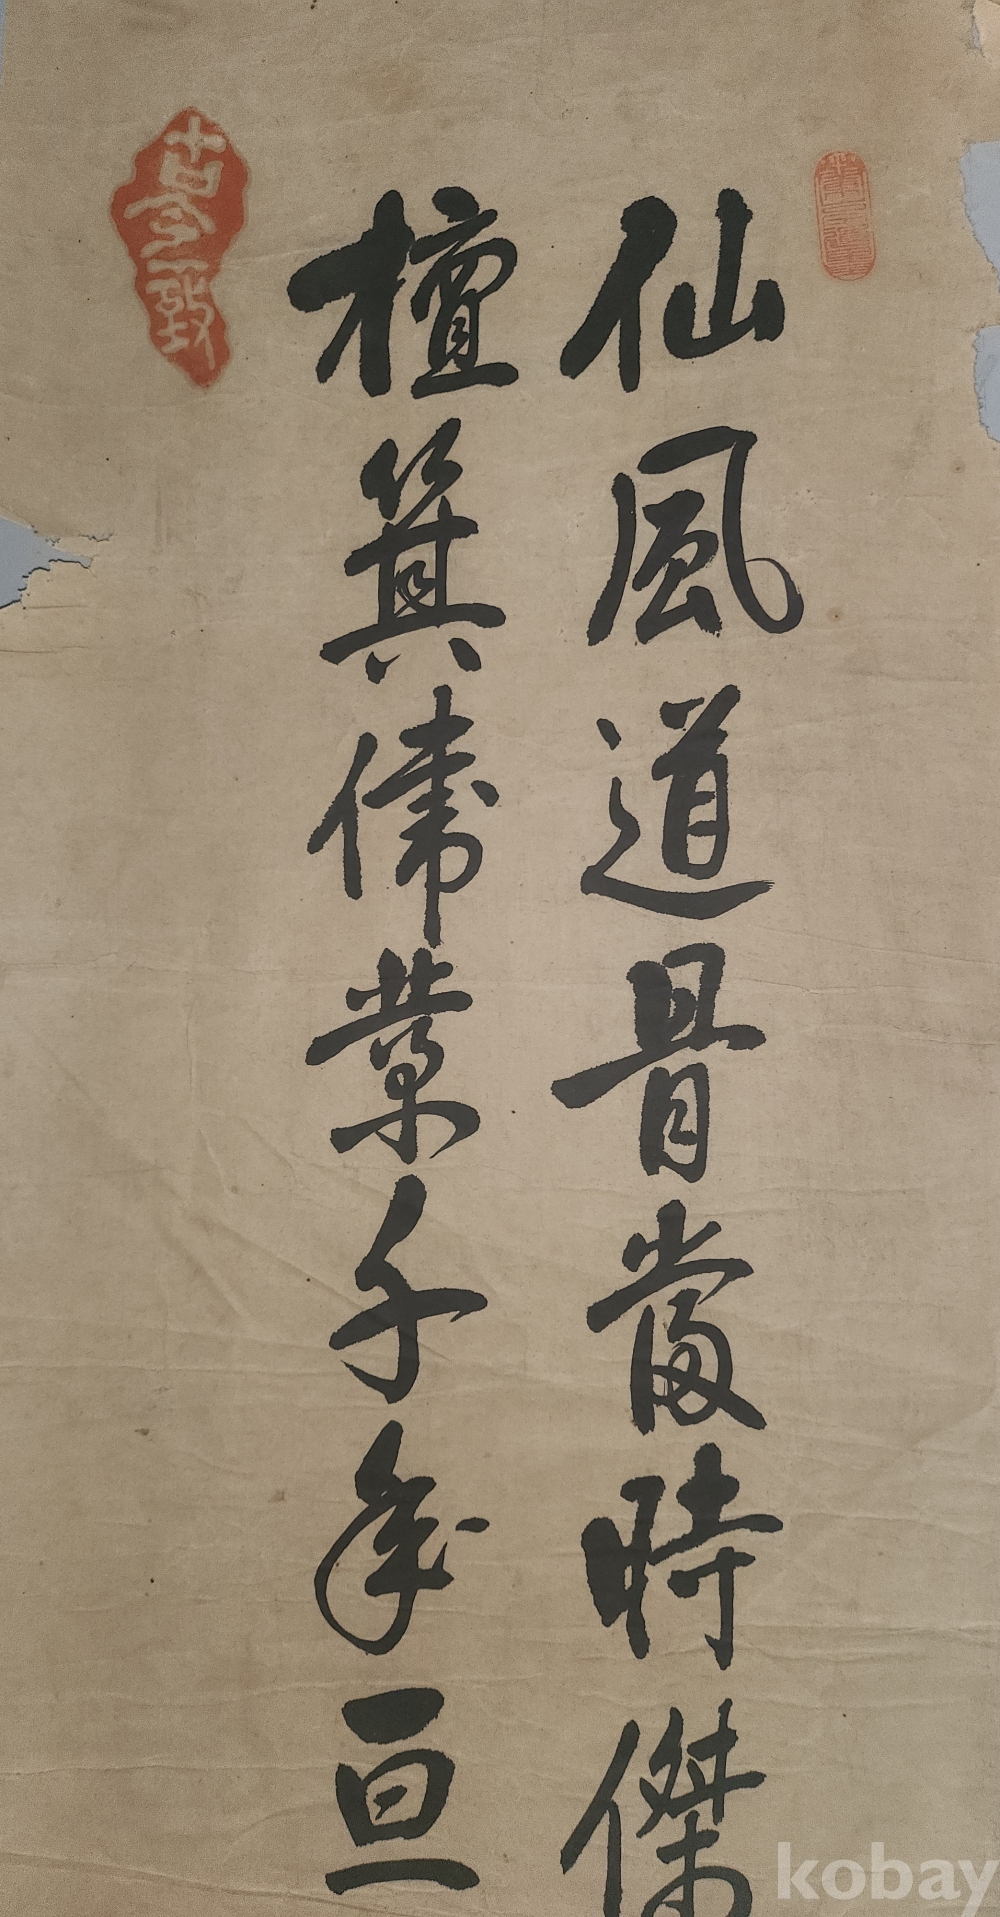 仙風道骨當時傑
檀箕偉業千年亘
kobay